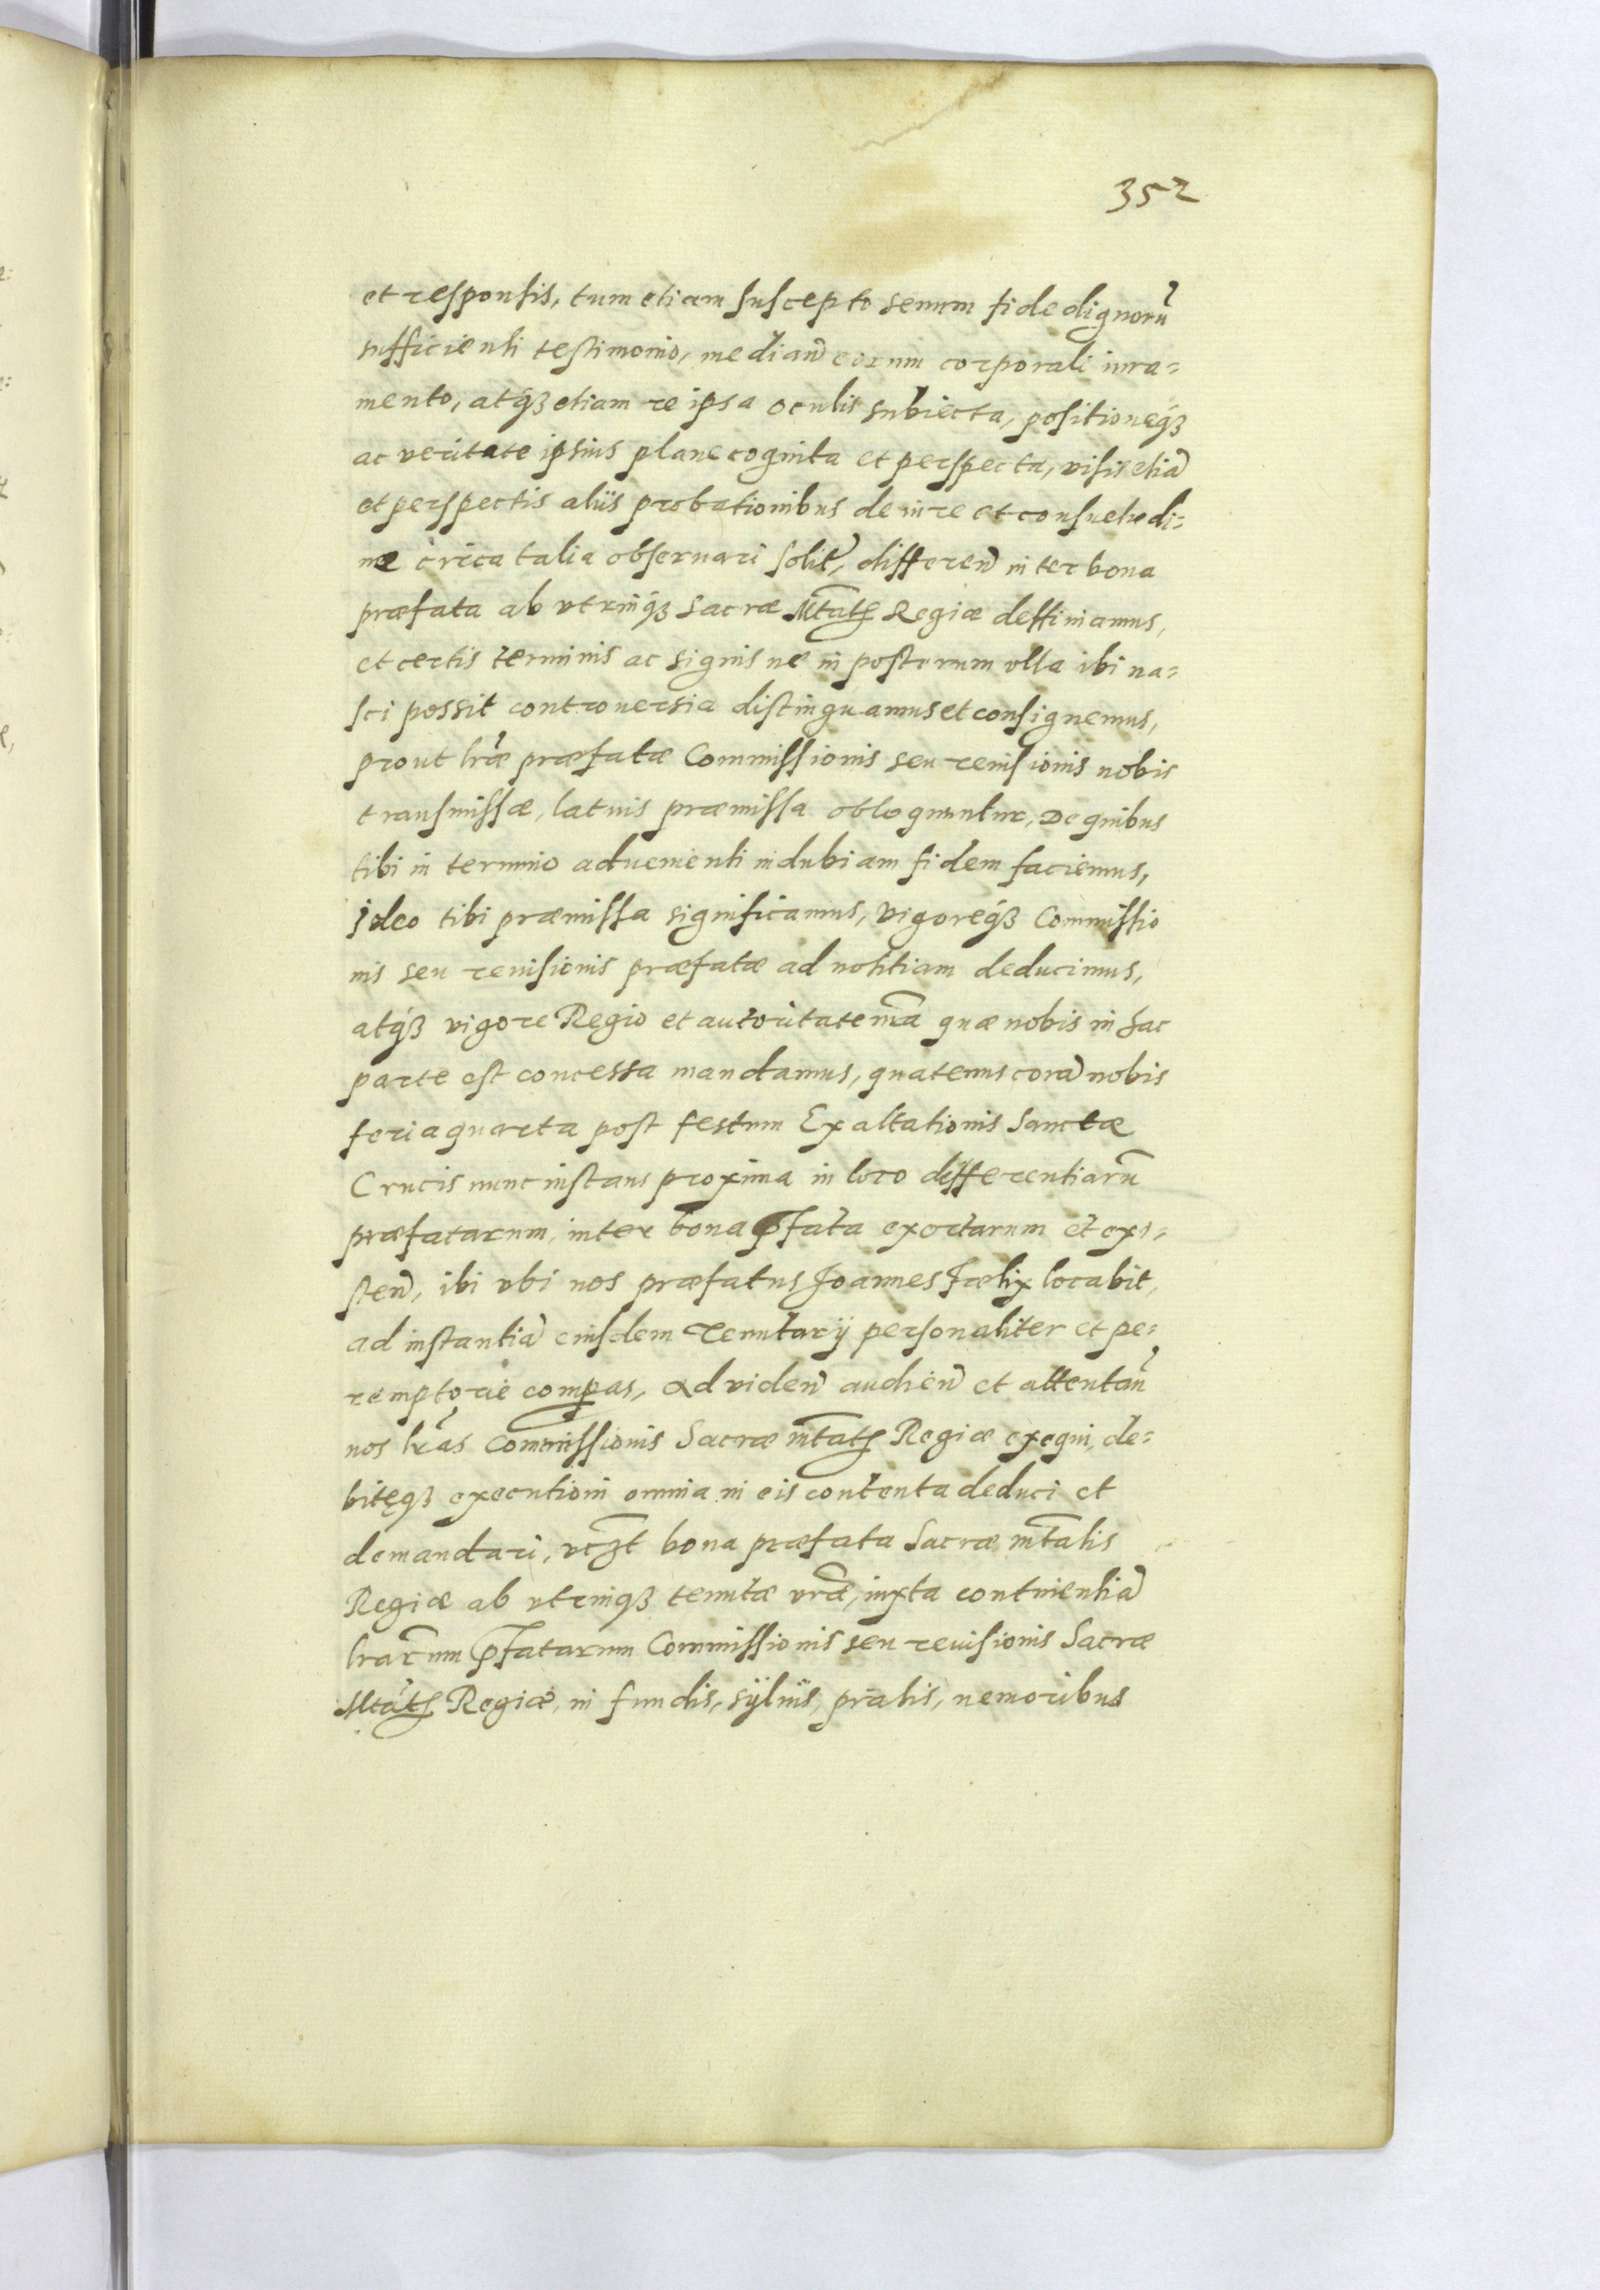 352
et responsis, tum etiam suscepto senum fide dignorū
sufficienti testimonio, median̄ eorum corporali iura-
mento, atq́ꝫ etiam re ipsa oculis subiecta, positioneq́ꝫ
ac veritate ipsius plane cognita et perspecta, visis etiā
et perspectis aliis probationibus de iure et consuetudi-
ne circa talia obseruari solit̄, differen̄ inter bona
præfata ab vtrinq́ꝫ Sacræ Mtatis Regiæ deffiniamus,
et certis terminis ac signis ne in posterum vlla ibi na-
sci possit controuersia distinguamus et consignemus,
prout lræ præfatæ Commissionis seu reuisionis nobis
transmissæ, latius præmissa obloquuntur, De quibus
tibi in termino aduenienti indubiam fidem faciemus,
Ideo tibi præmissa significamus, vigoreq́ꝫ Commissio
nis seu reuisionis præfatæ ad notitiam deducimus,
atq́ꝫ vigore Regio et autoritate nrā quæ nobis in hac
parte est concessa mandamus, quatenus corā nobis
feria quarta post festum Exaltationis Sanctæ
Crucis nunc instans proxima in loco differentiarū
præfatarum, inter bona p̄fata exortarum et exi-
sten̄, ibi vbi nos præfatus Joannes Fœlix locabit,
ad instantiā eiusdem Tenutarij personaliter et pe-
remptorie compas, Ad viden̄ audien̄ et attentan̄
nos lrās Commissionis Sacræ Mtatis Regiæ exequi, de-
bitęqꝫ executioni omnia in eis contenta deduci et
demandari, vcꝫt bona præfata Sacræ Mtatis
Regiæ ab vtrinqꝫ tenutæ vræ, iuxta continentiā
lrarum p̄fatarum Commissionis seu reuisionis Sacræ
Mtatis Regiæ, in fundis, sÿluis, pratis, nemoribus